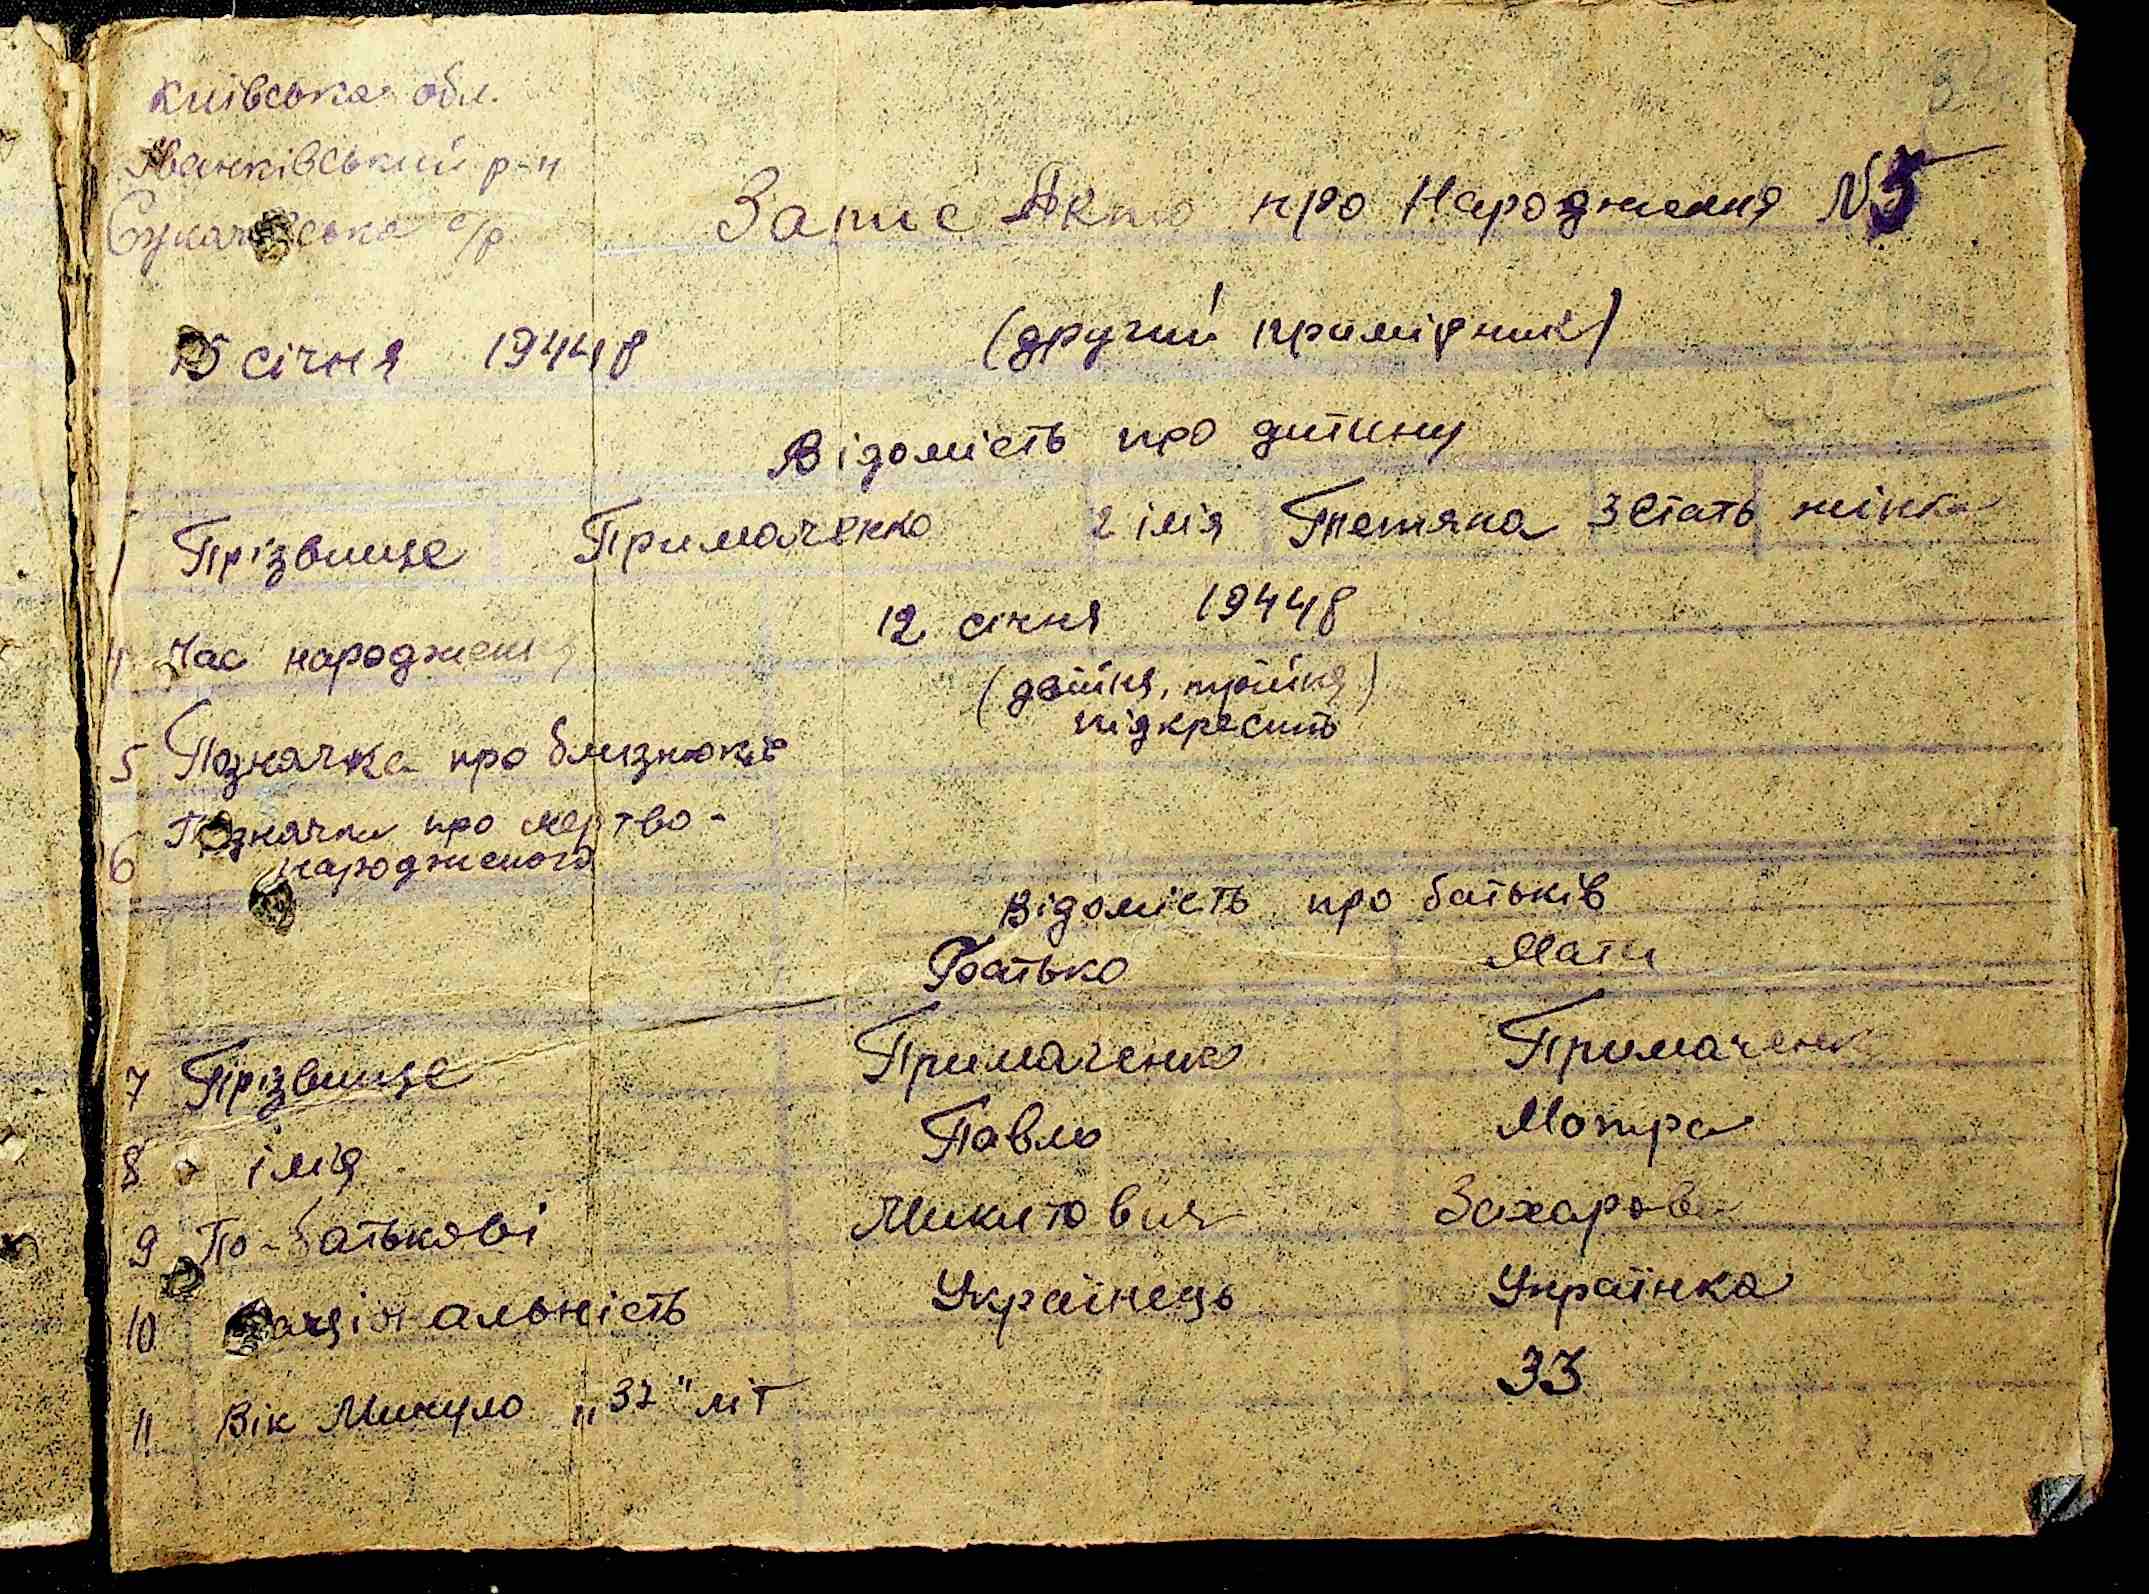 Київська обл.
Іванківський р-н
Сукачівська с/р
Запис Акта про Народження N5
15 січня 1944 р
(другий примірник)
Відомість про дитину
1 Прізвище Примаченко 2 імя Тетяна 3 Стать жінка
4 Час народження 12 січня 1944 р
(двійня, трійня)
підкресить
5 Позначка про близнюків
6 Позначка про мертво-
народженого
Відомість про батьків
Батько Мати
7 Прізвище Примаченко Примаченк
8 імя Павло Мотра
9 По-батькові Микитович Захарова
10 Національність Українець Українка
11 Вік Минуло "37" літ 33